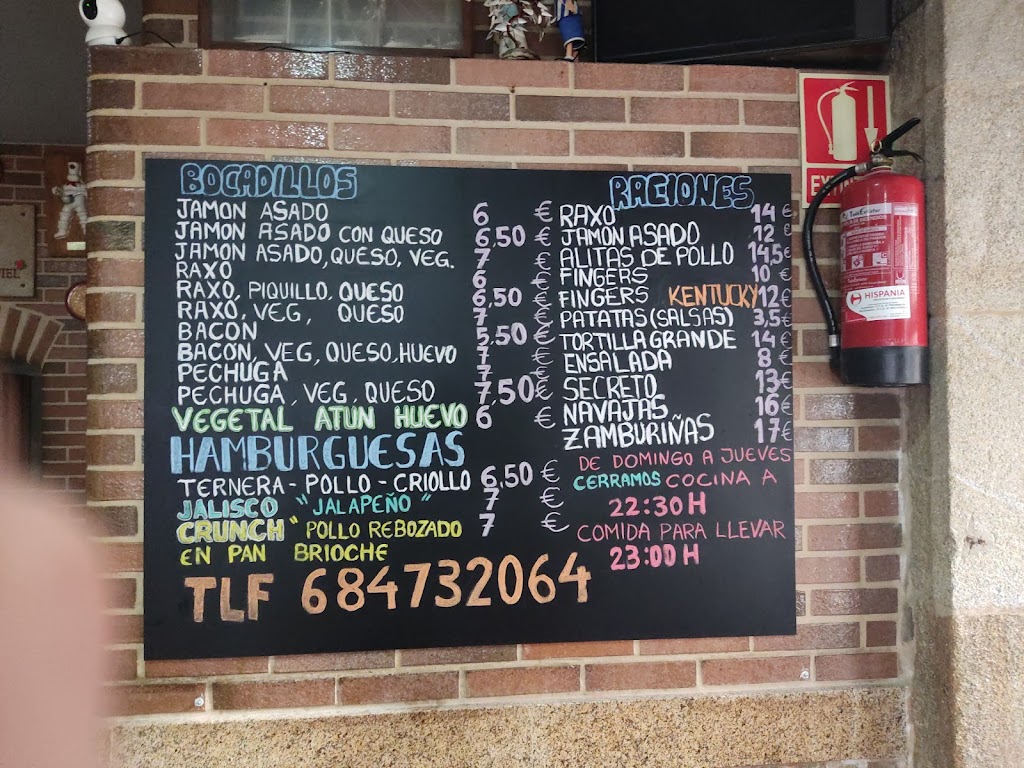 BOCADILLOS
JAMON ASADO 6 €
JAMON ASADO CON QUESO 6,50 €
JAMON ASADO, QUESO, VEG. 7 €
RAXO 6 €
RAXO, PIQUILLO, QUESO 6,50 €
RAXO, VEG, QUESO 7 €
BACON 5,50 €
BACON, VEG, QUESO, HUEVO 7 €
PECHUGA 7 €
PECHUGA, VEG, QUESO 7,50 €
VEGETAL ATUN HUEVO 6 €
HAMBURGUESAS
TERNERA - POLLO - CRIOLLO 6,50 €
JALISCO "JALAPEÑO" 7 €
CRUNCH " POLLO REBOZADO 7 €
EN PAN BRIOCHE
TLF 684732064
RACIONES
RAXO 14 €
JAMON ASADO 12 €
ALITAS DE POLLO 14,5 €
FINGERS 10 €
FINGERS KENTUCKY 12 €
PATATAS (SALSAS) 3,5 €
TORTILLA GRANDE 14 €
ENSALADA 8 €
SECRETO 13 €
NAVAJAS 16 €
ZAMBURIÑAS 17 €
DE DOMINGO A JUEVES
CERRAMOS COCINA A
22:30 H
COMIDA PARA LLEVAR
23:00 H
HISPANIA